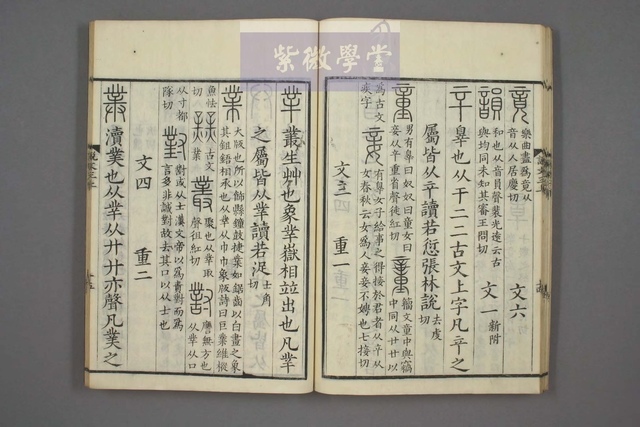 紫微學堂
竟 樂曲盡爲竟从
音从人居慶切
文六
韻 和也从音員聲裴光遠云古
與均同未知其審王問切
文一 新附
䇂 辠也从干二二古文上字凡䇂之
屬皆从䇂讀若愆張林說 去虔切
童 男有辠曰奴奴曰童女曰
妾从䇂重省聲徒紅切
𥪡 籀文童中與竊
中同从廿廿以
爲古文
疾字
妾 有辠女子給事之得接於君者从䇂从
女春秋云女爲人妾妾不娉也七接切
文三 重一
丵 叢生艸也象丵嶽相竝出也凡丵
之屬皆从丵讀若浞 士角切
業 大版也所以飾縣鐘鼓捷業如鋸齒以白畫之象
其鉏鋙相承也从丵从巾巾象版詩曰巨業維樅
魚怯
切
古文
業
叢 聚也从丵取
聲徂紅切
對 譍無方也
从丵从口
从寸都
隊切
對 對或从士漢文帝以爲責對而爲
言多非誠對故去其口以从士也
文四 重二
菐 瀆菐也从丵从廾廾亦聲凡菐之